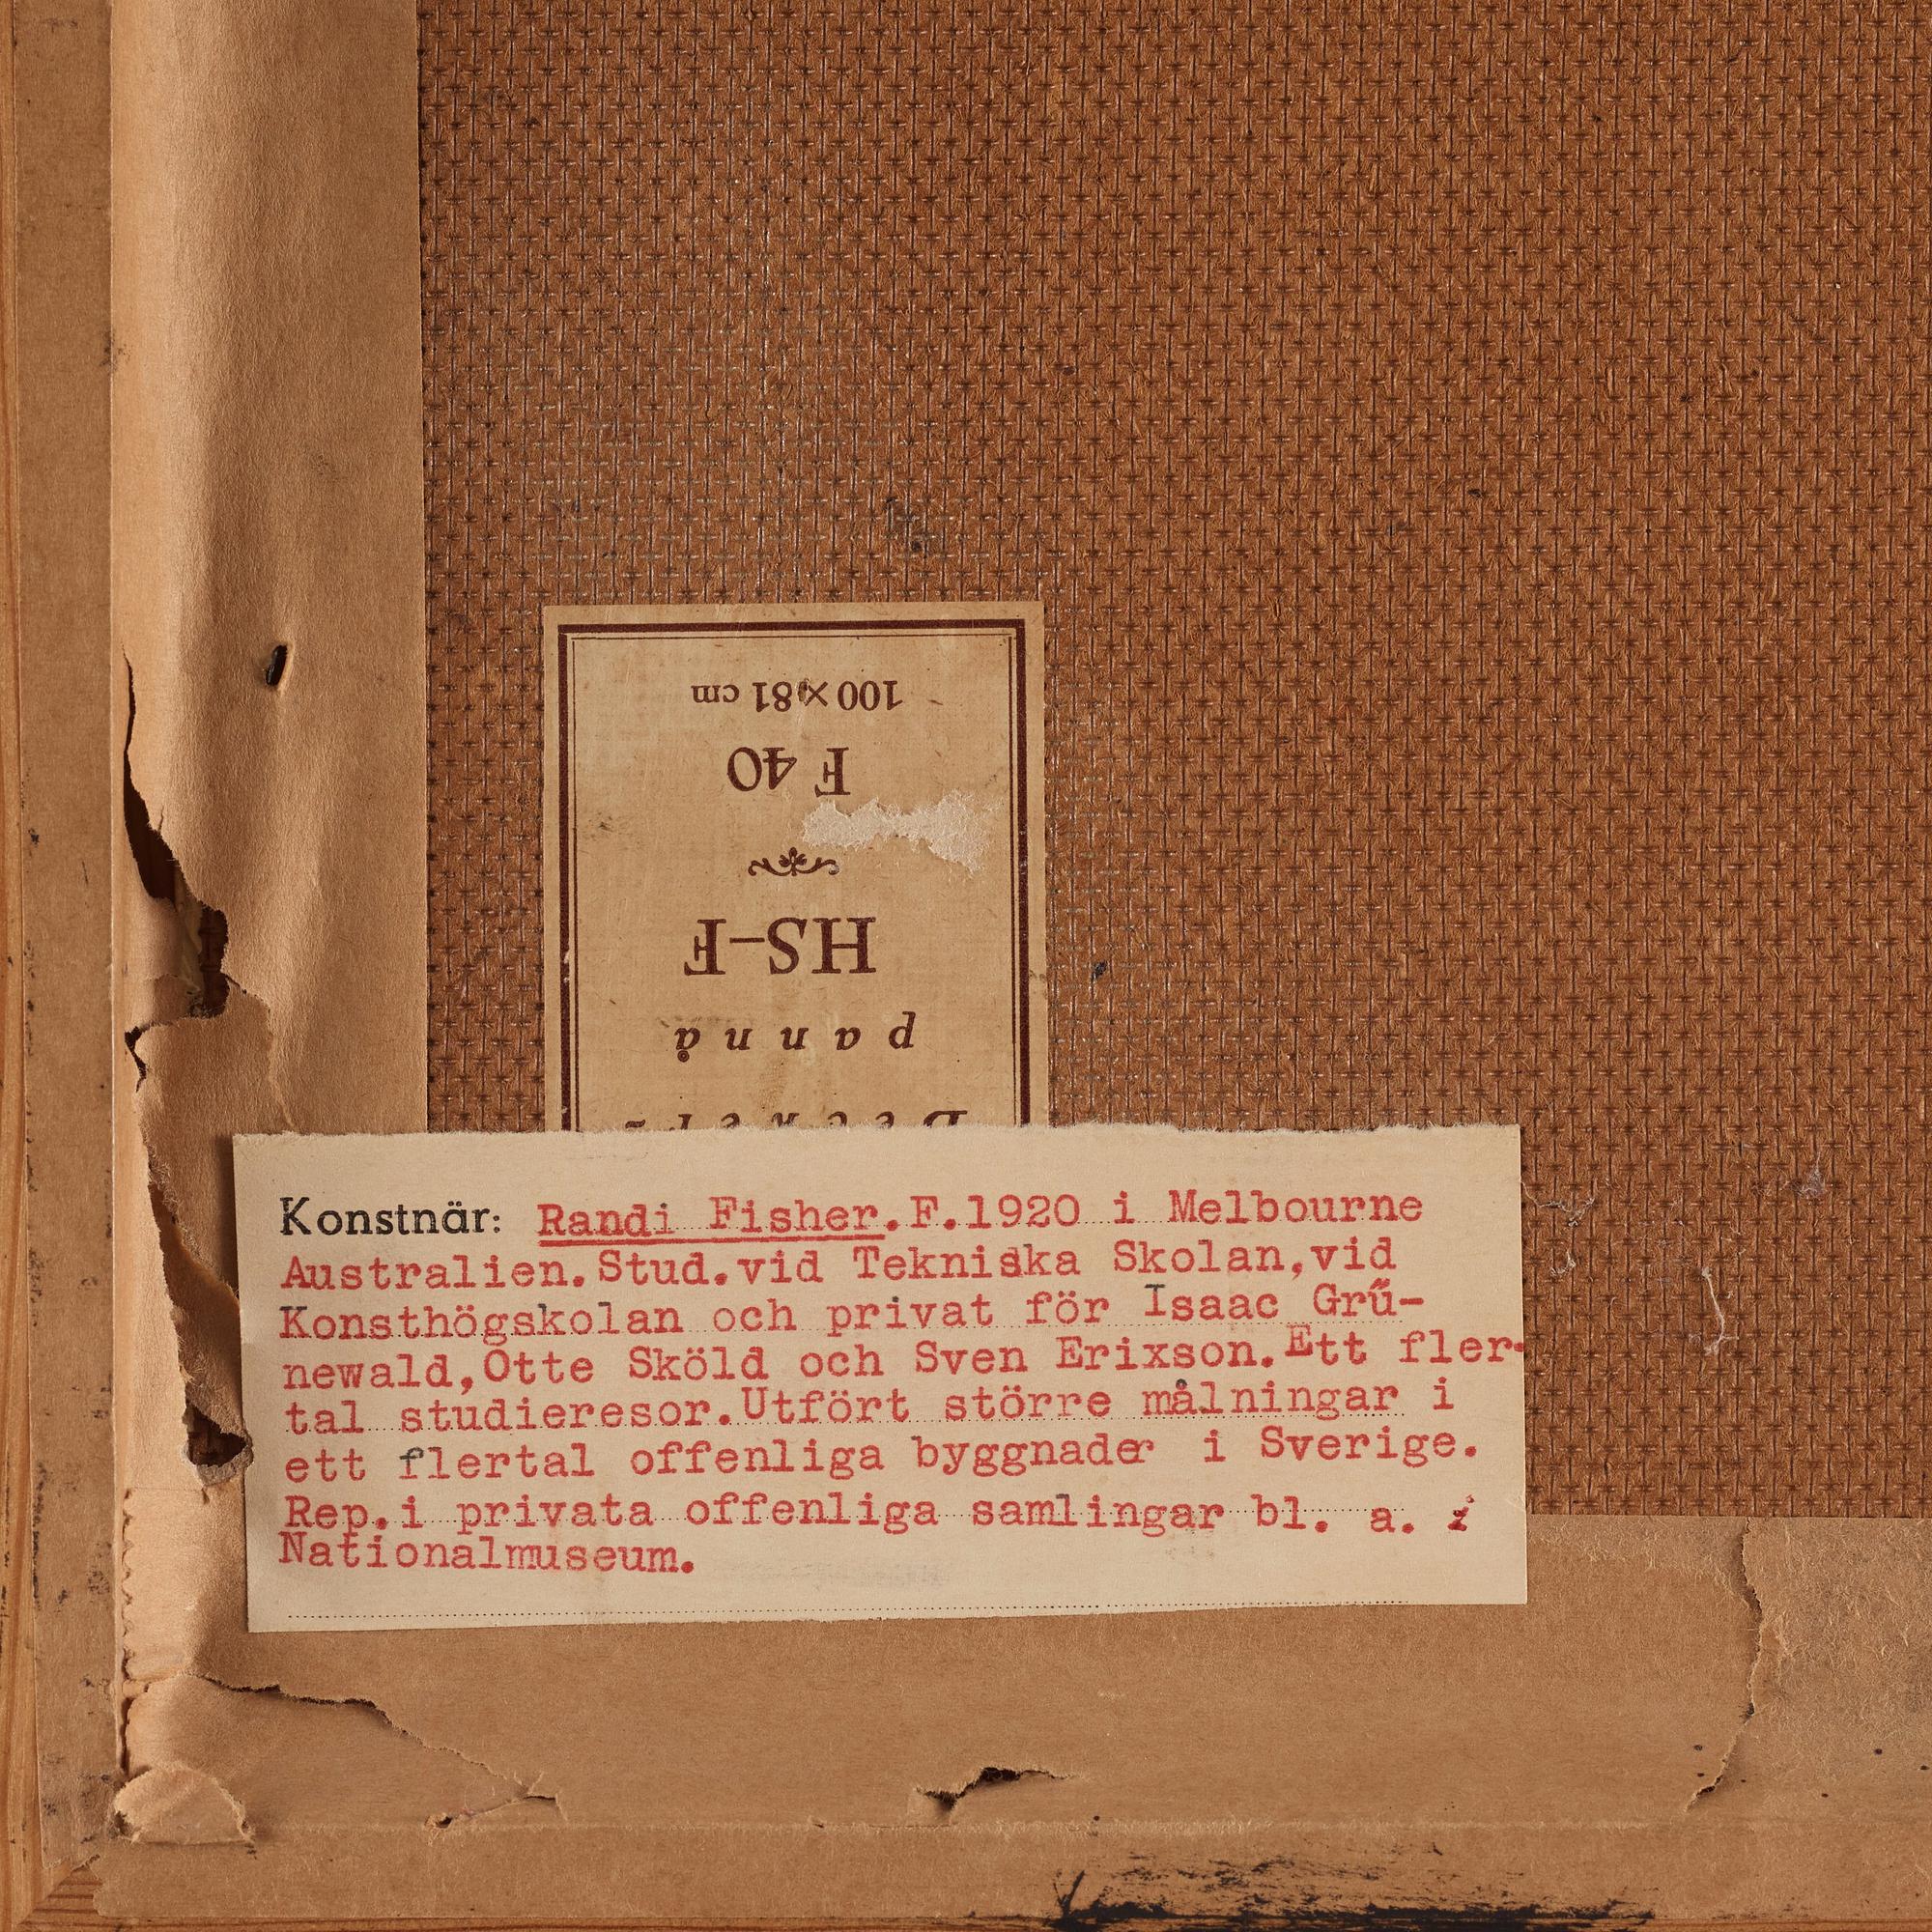 Konstnär: Randi Fisher.F.1920 i Melbourne
Australien.Stud.vid Tekniska Skolan,vid
Konsthögskolan och privat för Isaac Grű-
newald,Otte Sköld och Sven Erixson.Ett fler-
tal studieresor.Utfört större målningar i
ett flertal offenliga byggnader i Sverige.
Rep.i privata offenliga samlingar bl. a. i
Nationalmuseum.
Beckers
pannå
HS-F
F 40
100×81 cm